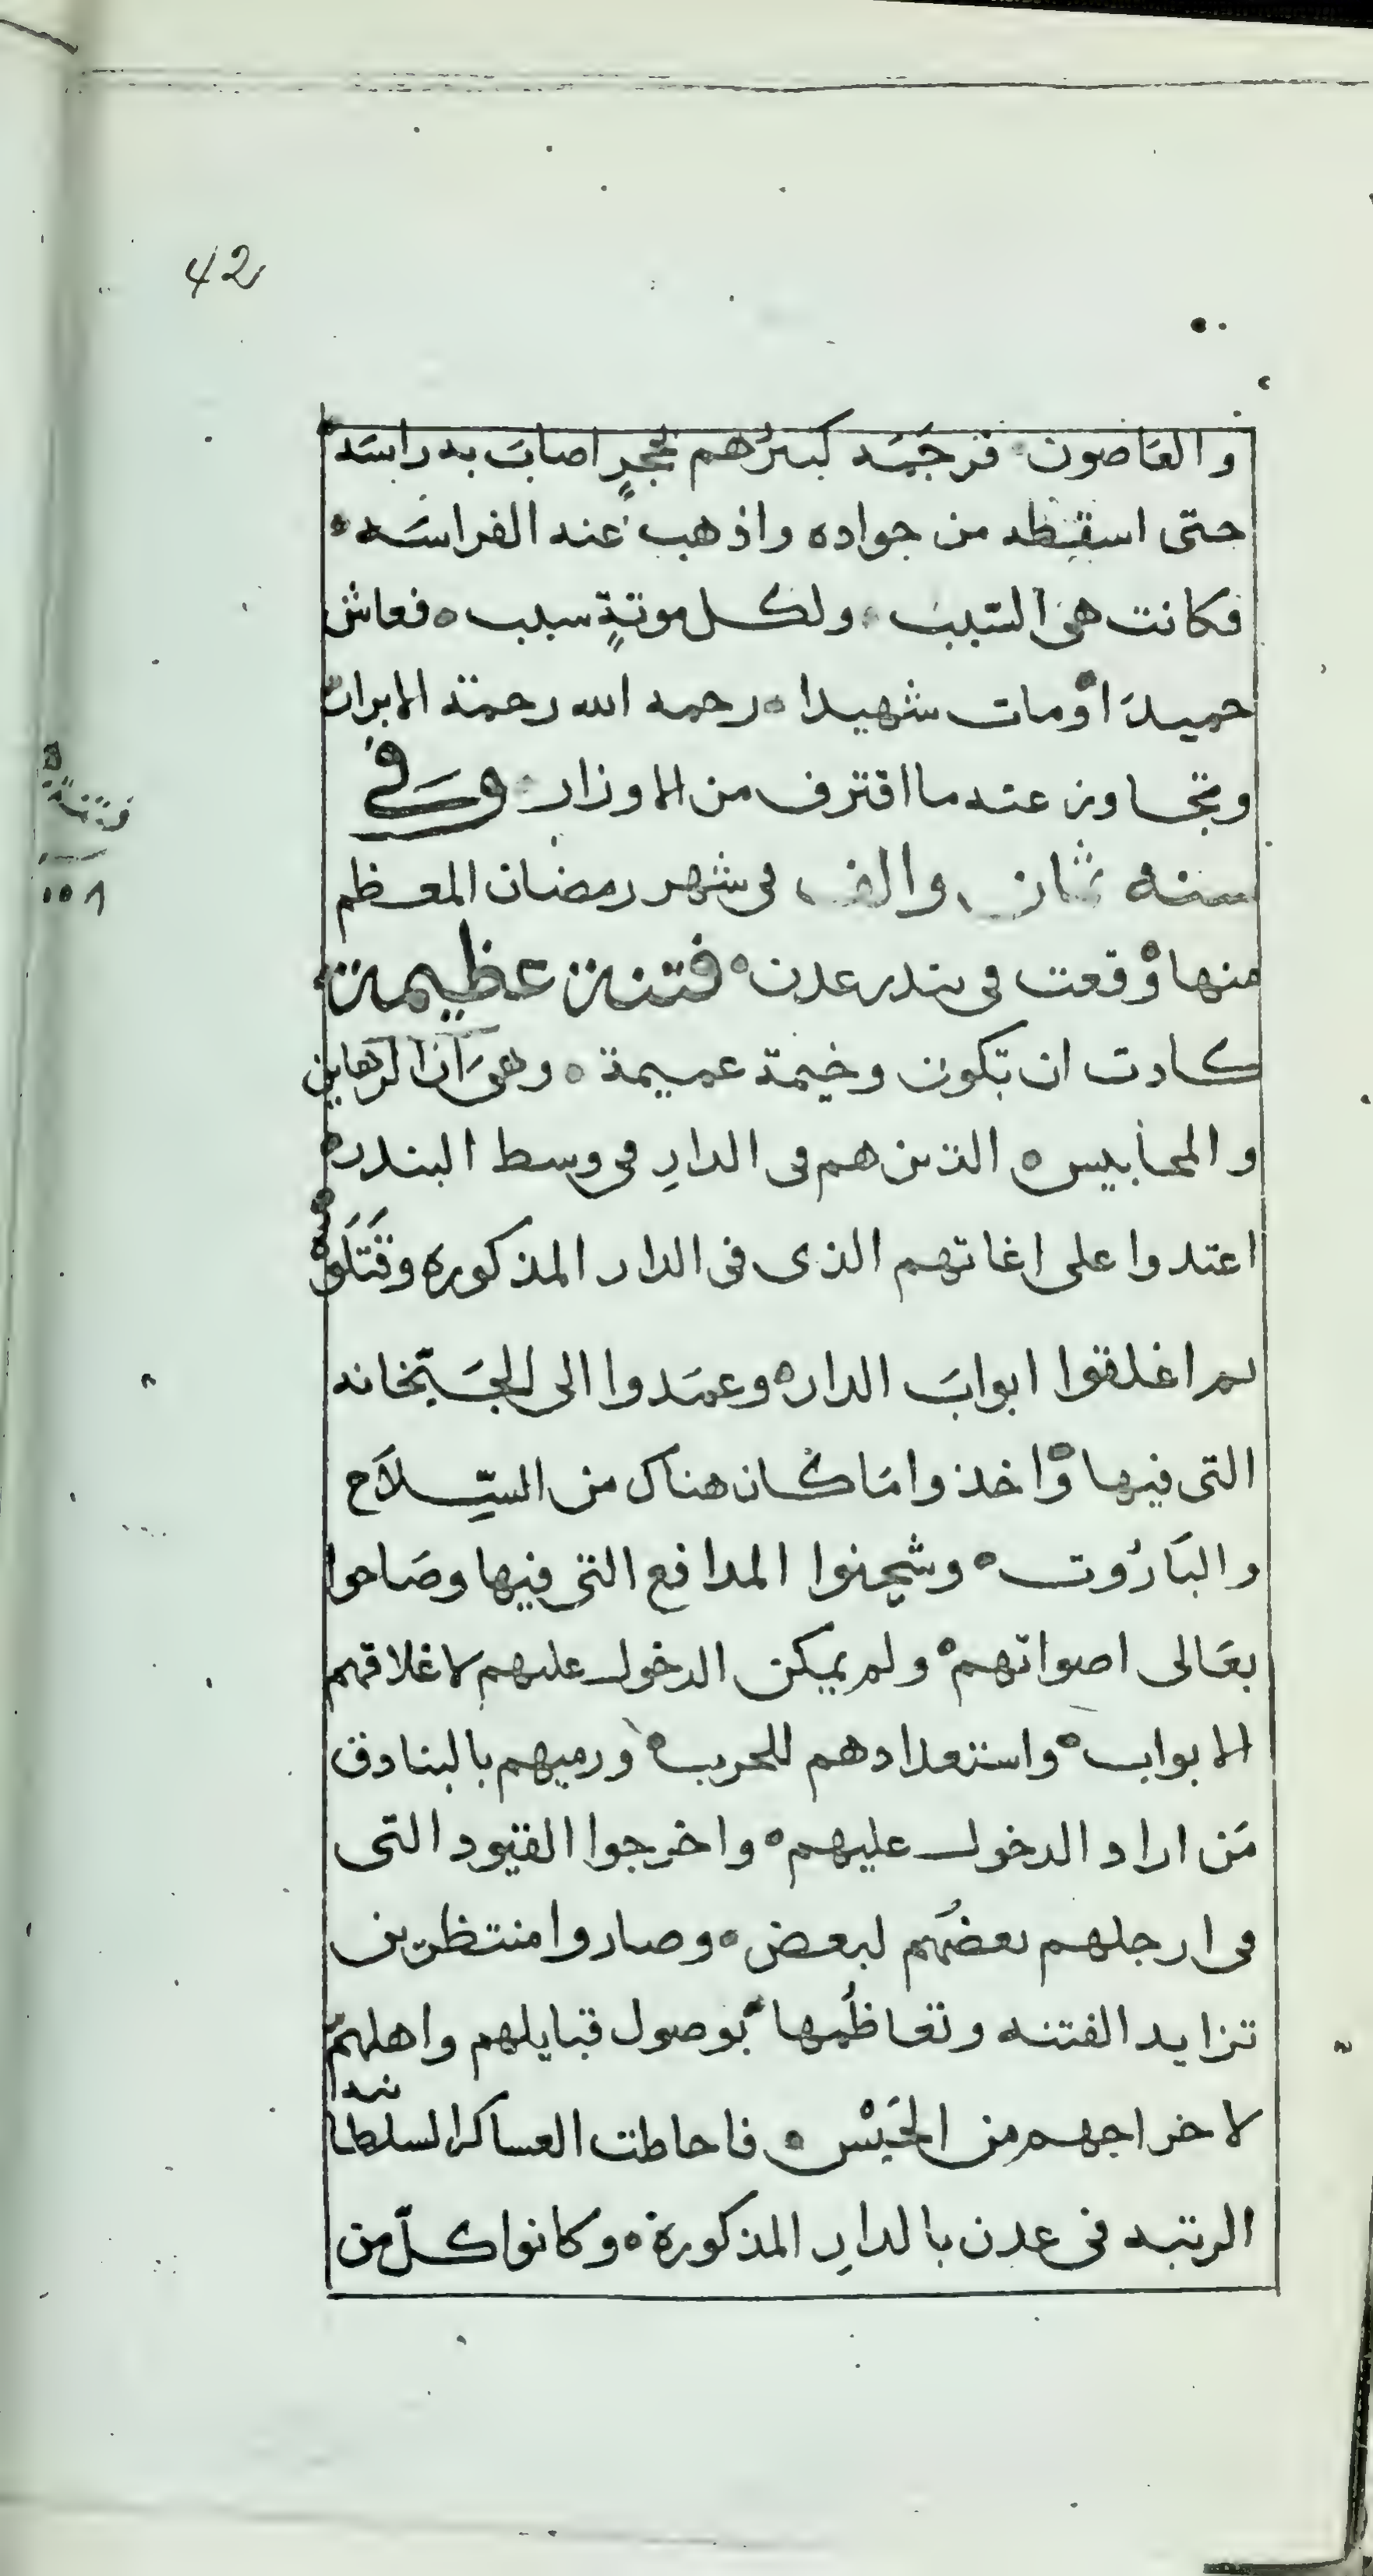 42
والعَاصون۰ فرجَمَه كبيرُهم بحجرٍ اصابَ به راسَه
حتى اسقطه من جواده واذهب عند الفراسَه۰
فكانت هى السَّبب۰ ولكل موتةٍ سبب ه فعاش
حميدَا ومات شهيدا ه رحمه الله رحمة الابرار
وتجاوز عنه ما اقترف من الاوزار۰ وَفى
سنه ثمان والف فى شهر رمضان المعظم
منها وقعت فى بندر عدن ه فتنة عظيمة
كادت ان تكون وخيمة عميمة ه وهىَ انّ الرهاين
والمحابيس ه الذين هم فى الدارِ فى وسط البندر ه
اعتدوا على اغاتهم الذى فى الدار المذكوره وقَتَلَوه
ثم اغلقوا ابوابَ الدار ه وعمَدوا الى الجبَخانه
التى فيها واخذوا مَا كان هناك من السِّلاَح
والبَارُوت ه وشحِنوا المدافع التى فيها وصَاحوا
بعَالى اصواتهم ه ولم يمكن الدخول عليهم لاغلاقهم
الابواب ه واستعدادهم للحرب ه ورميهم بالبنادق
مَن اراد الدخول عليهم ه واخرجوا القيود التى
فى ارجلهم بعضُهم لبعض ه وصاروا منتظرين
تزايد الفتنه وتعاظُمها ه بوصول قبايلهم واهلهم
لاخراجهم من الحَبْس ه فاحاطت العساكر السلطانيه
الرتبه فى عدن بالدارِ المذكورة ه وكانوا كلّ من
فتنة
١٠٠٨